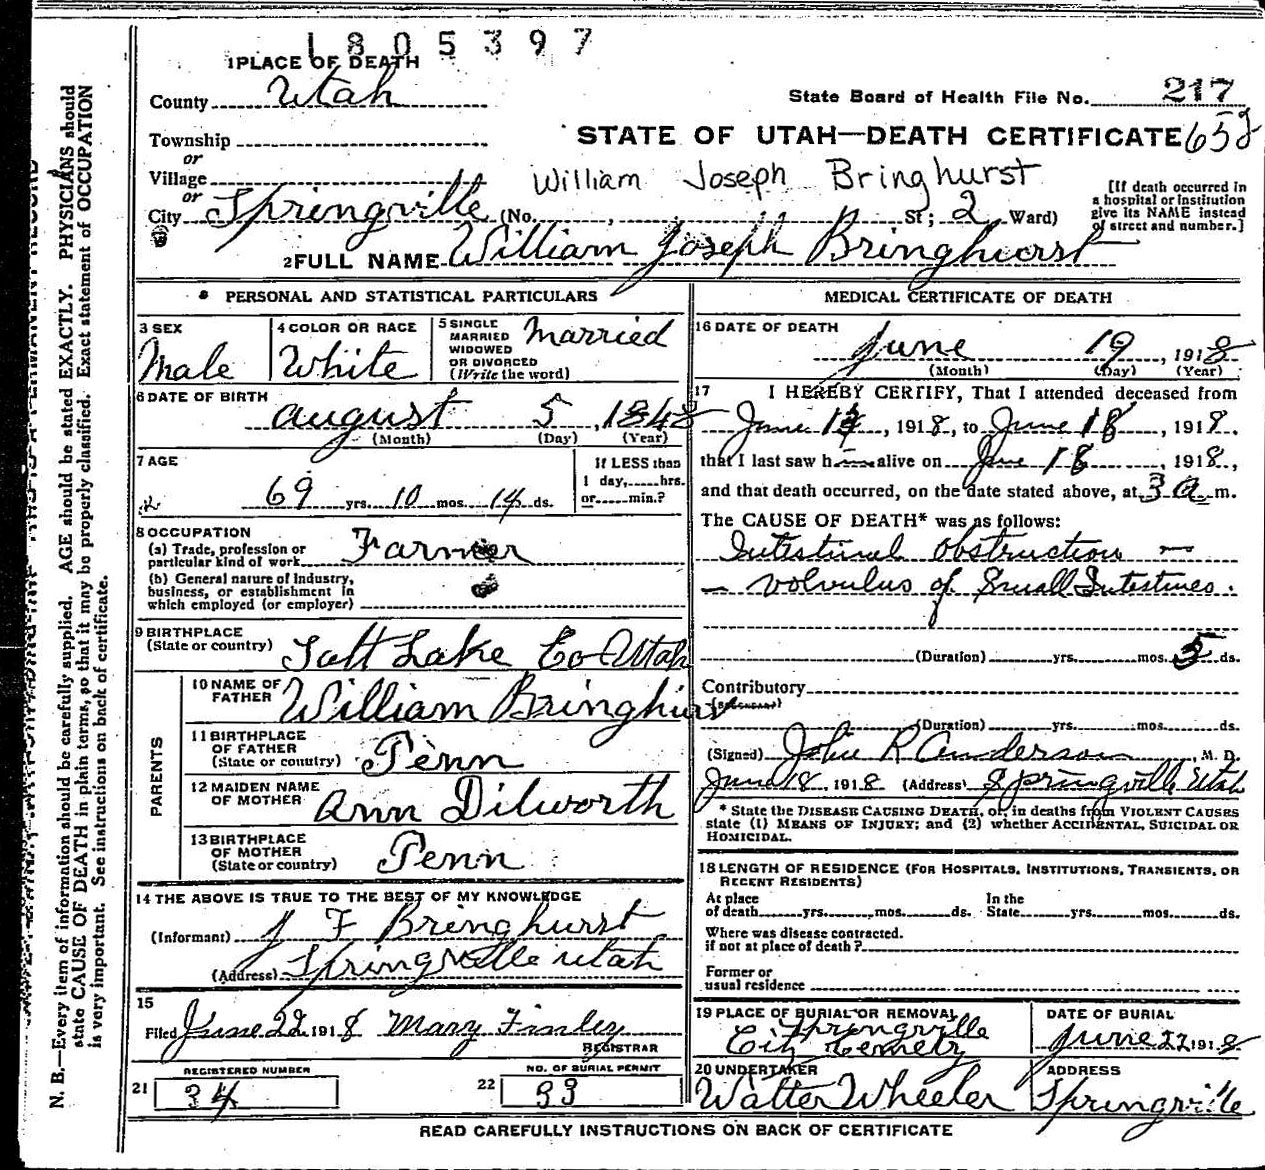 1805397
1 PLACE OF DEATH
County Utah
State Board of Health File No. 217
Township
STATE OF UTAH—DEATH CERTIFICATE 652
or
Village
William Joseph Bringhurst
or
City Springville (No. , , St; 2 Ward)
[If death occurred in
a hospital or institution
give its NAME instead
of street and number.]
2 FULL NAME William Joseph Bringhurst
PERSONAL AND STATISTICAL PARTICULARS
3 SEX
Male
4 COLOR OR RACE
White
5 SINGLE
MARRIED
WIDOWED
OR DIVORCED
(Write the word)
Married
6 DATE OF BIRTH
August 5, 1848
(Month) (Day) (Year)
7 AGE
69 yrs. 10 mos. 14 ds.
If LESS than
1 day, hrs.
or min.?
8 OCCUPATION
(a) Trade, profession or
particular kind of work Farmer
(b) General nature of industry,
business, or establishment in
which employed (or employer)
9 BIRTHPLACE
(State or country) Salt Lake Co Utah
PARENTS
10 NAME OF
FATHER William Bringhurst
11 BIRTHPLACE
OF FATHER
(State or country) Penn
12 MAIDEN NAME
OF MOTHER Ann Dilworth
13 BIRTHPLACE
OF MOTHER
(State or country) Penn
14 THE ABOVE IS TRUE TO THE BEST OF MY KNOWLEDGE
(Informant) J F Bringhurst
(Address) Springville Utah
15
Filed June 22 1918 Mary Finley
REGISTRAR
REGISTERED NUMBER
21 34
NO. OF BURIAL PERMIT
22 33
MEDICAL CERTIFICATE OF DEATH
16 DATE OF DEATH
June 19, 1918
(Month) (Day) (Year)
17 I HEREBY CERTIFY, That I attended deceased from
June 13, 1918, to June 18, 1918.
that I last saw him alive on June 18, 1918,
and that death occurred, on the date stated above, at 3 a m.
The CAUSE OF DEATH* was as follows:
Intestinal obstruction —
— volvulus of Small Intestines.
(Duration) yrs. mos. 5 ds.
Contributory
(Secondary)
(Duration) yrs. mos. ds.
(Signed) John R Anderson, M. D.
June 18 1918 (Address) Springville Utah
* State the DISEASE CAUSING DEATH, or, in deaths from VIOLENT CAUSES
state (1) MEANS OF INJURY; and (2) whether ACCIDENTAL, SUICIDAL OR
HOMICIDAL.
18 LENGTH OF RESIDENCE (FOR HOSPITALS, INSTITUTIONS, TRANSIENTS, OR
RECENT RESIDENTS)
At place
of death yrs. mos. ds.
In the
State yrs. mos. ds.
Where was disease contracted.
if not at place of death?
Former or
usual residence
19 PLACE OF BURIAL OR REMOVAL
Springville
City Cemetery
DATE OF BURIAL
June 22 1918
20 UNDERTAKER
Walter Wheeler
ADDRESS
Springville
READ CAREFULLY INSTRUCTIONS ON BACK OF CERTIFICATE
N. B.—Every item of information should be carefully supplied. AGE should be stated EXACTLY. PHYSICIANS should
state CAUSE OF DEATH in plain terms, so that it may be properly classified. Exact statement of OCCUPATION
is very important. See instructions on back of certificate.